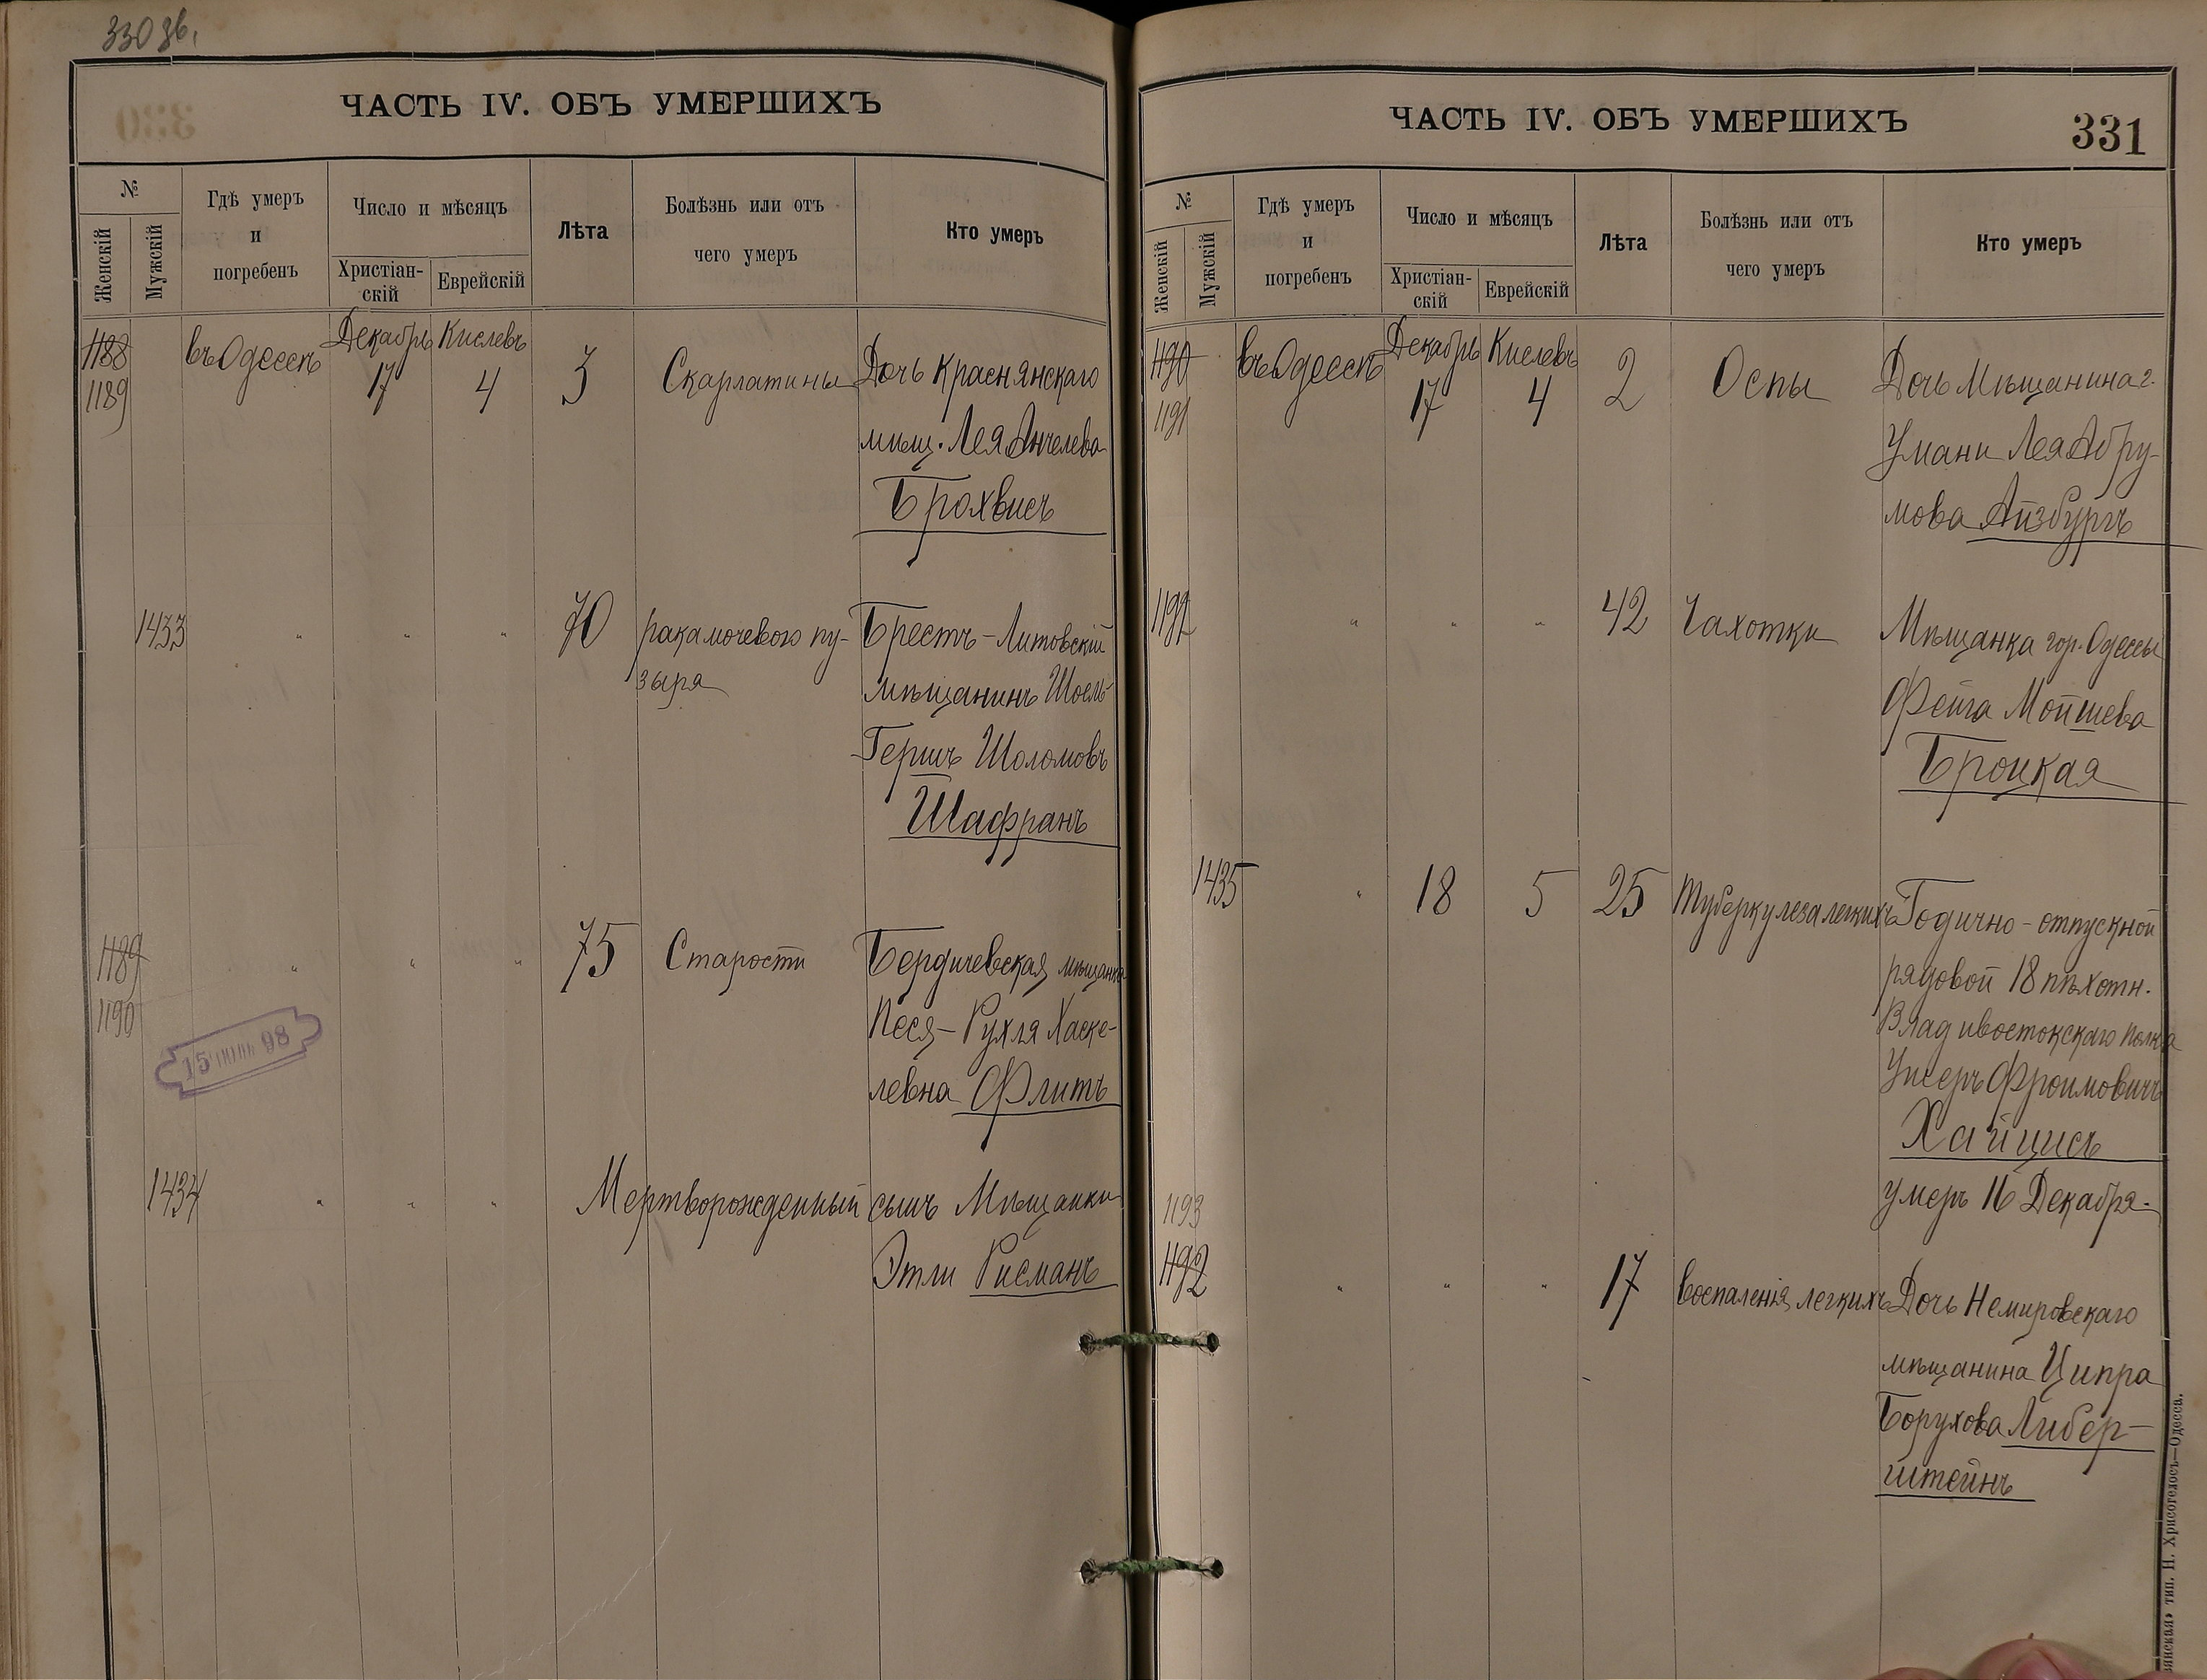 330 зв.
330
ЧАСТЬ IV. ОБЪ УМЕРШИХЪ
№
Женскій
Мужскій
Гдѣ умеръ
и
погребенъ
Число и мѣсяцъ
Христіан-
скій
Еврейскій
Лѣта
Болѣзнь или отъ
чего умеръ
Кто умеръ
1188
1189
въ Одессѣ
Декабрь
17
Кислевъ
4
3
Скарлатины
Дочь Краснянскаго
мѣщ. Лея Анчелева
Брохвисъ
1433
" " "
70
рака мочевого пу-
зыря
Брестъ-Литовскій
мѣщанинъ Шоель-
Гершъ Шоломовъ
Шафранъ
1189
1190
" " "
75
Старости
Бердичевская мѣщанка
Песя-Рухля Хаске-
левна Флитъ
15 98
1434
" " "
Мертворожденный сынъ Мѣщанки
Этли Рисманъ
ЧАСТЬ IV. ОБЪ УМЕРШИХЪ
331
№
Женскій
Мужскій
Гдѣ умеръ
и
погребенъ
Число и мѣсяцъ
Христіан-
скій
Еврейскій
Лѣта
Болѣзнь или отъ
чего умеръ
Кто умеръ
1190
1191
въ Одессѣ
Декабрь
17
Кислевъ
4
2
Оспы
Дочь Мѣщанина г.
Умани Лея Абру-
мова Айзбургъ
1192
" " "
42
Чахотки
Мѣщанка гор. Одессы
Фейга Мойшева
Броцкая
1435
"
18
5
25
Туберкулеза легкихъ
Годично-отпускной
рядовой 18 пѣхотн.
Владивостокскаго полка
Ушеръ Фроимовичъ
Хайцисъ
умеръ 16 Декабря.
1193
1192
" " "
17
воспаленія легкихъ
Дочь Немировскаго
мѣщанина Ципра
Борухова Либер-
штейнъ
тип. Н. Хрисогелосъ—Одесса.